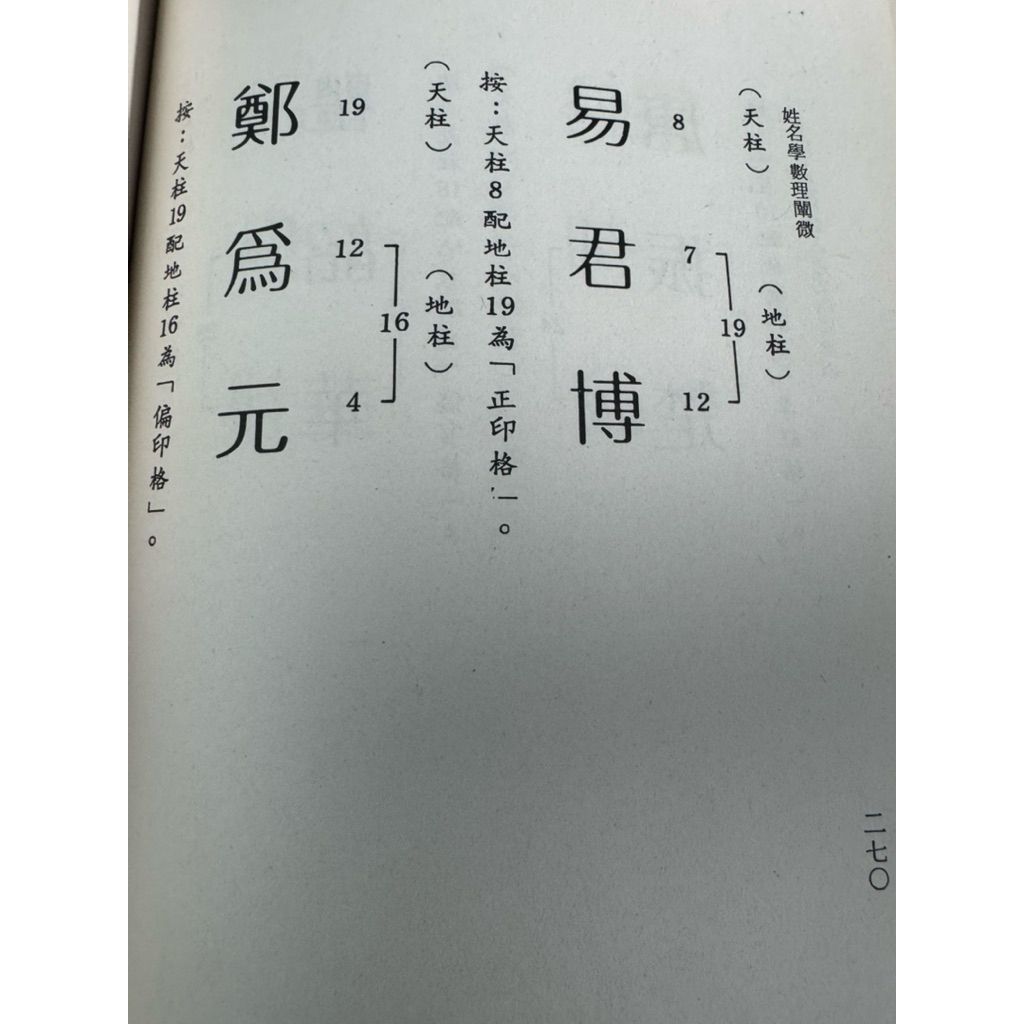 姓名學數理闡微
(天柱)
(地柱)
8
7
19
12
易君博
按：天柱8配地柱19為「正印格」。
(天柱)
(地柱)
19
12
16
4
鄭爲元
按：天柱19配地柱16為「偏印格」。
二七〇